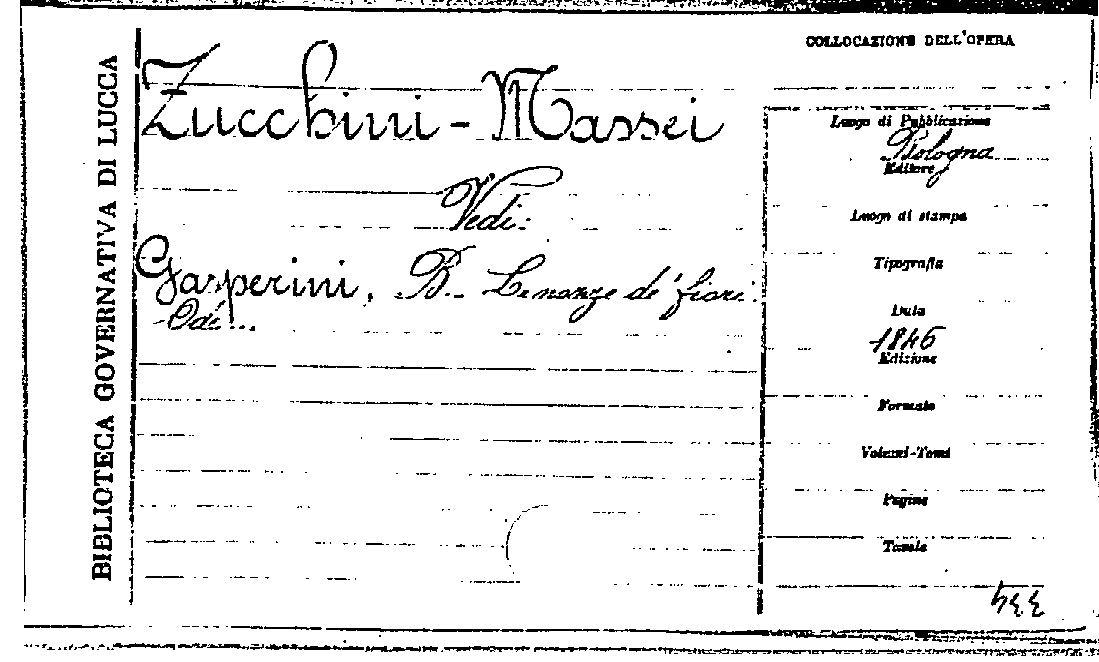 BIBLIOTECA GOVERNATIVA DI LUCCA
COLLOCAZIONE DELL'OPERA
Zucchini - Massei
Vedi:
Gasperini, B. - Le nozze de' fiori.
Odi...
Luogo di Pubblicazione
Bologna
Editore
Luogo di stampa
Tipografia
Data
1846
Edizione
Formato
Volumi-Tomi
Pagine
Tavole
334